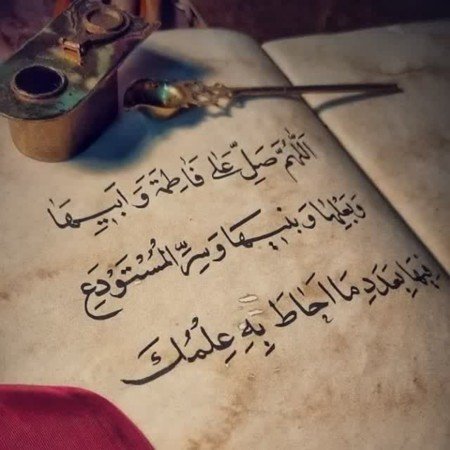 اَللّٰهُمَّ صَلِّ عَلٰی فَاطِمَةَ وَ اَبِیهَا
وَ بَعْلِهَا وَ بَنِیهَا وَ سِرِّ الْمُسْتَوْدَعِ
فِیهَا بِعَدَدِ مَا اَحَاطَ بِهِ عِلْمُكَ